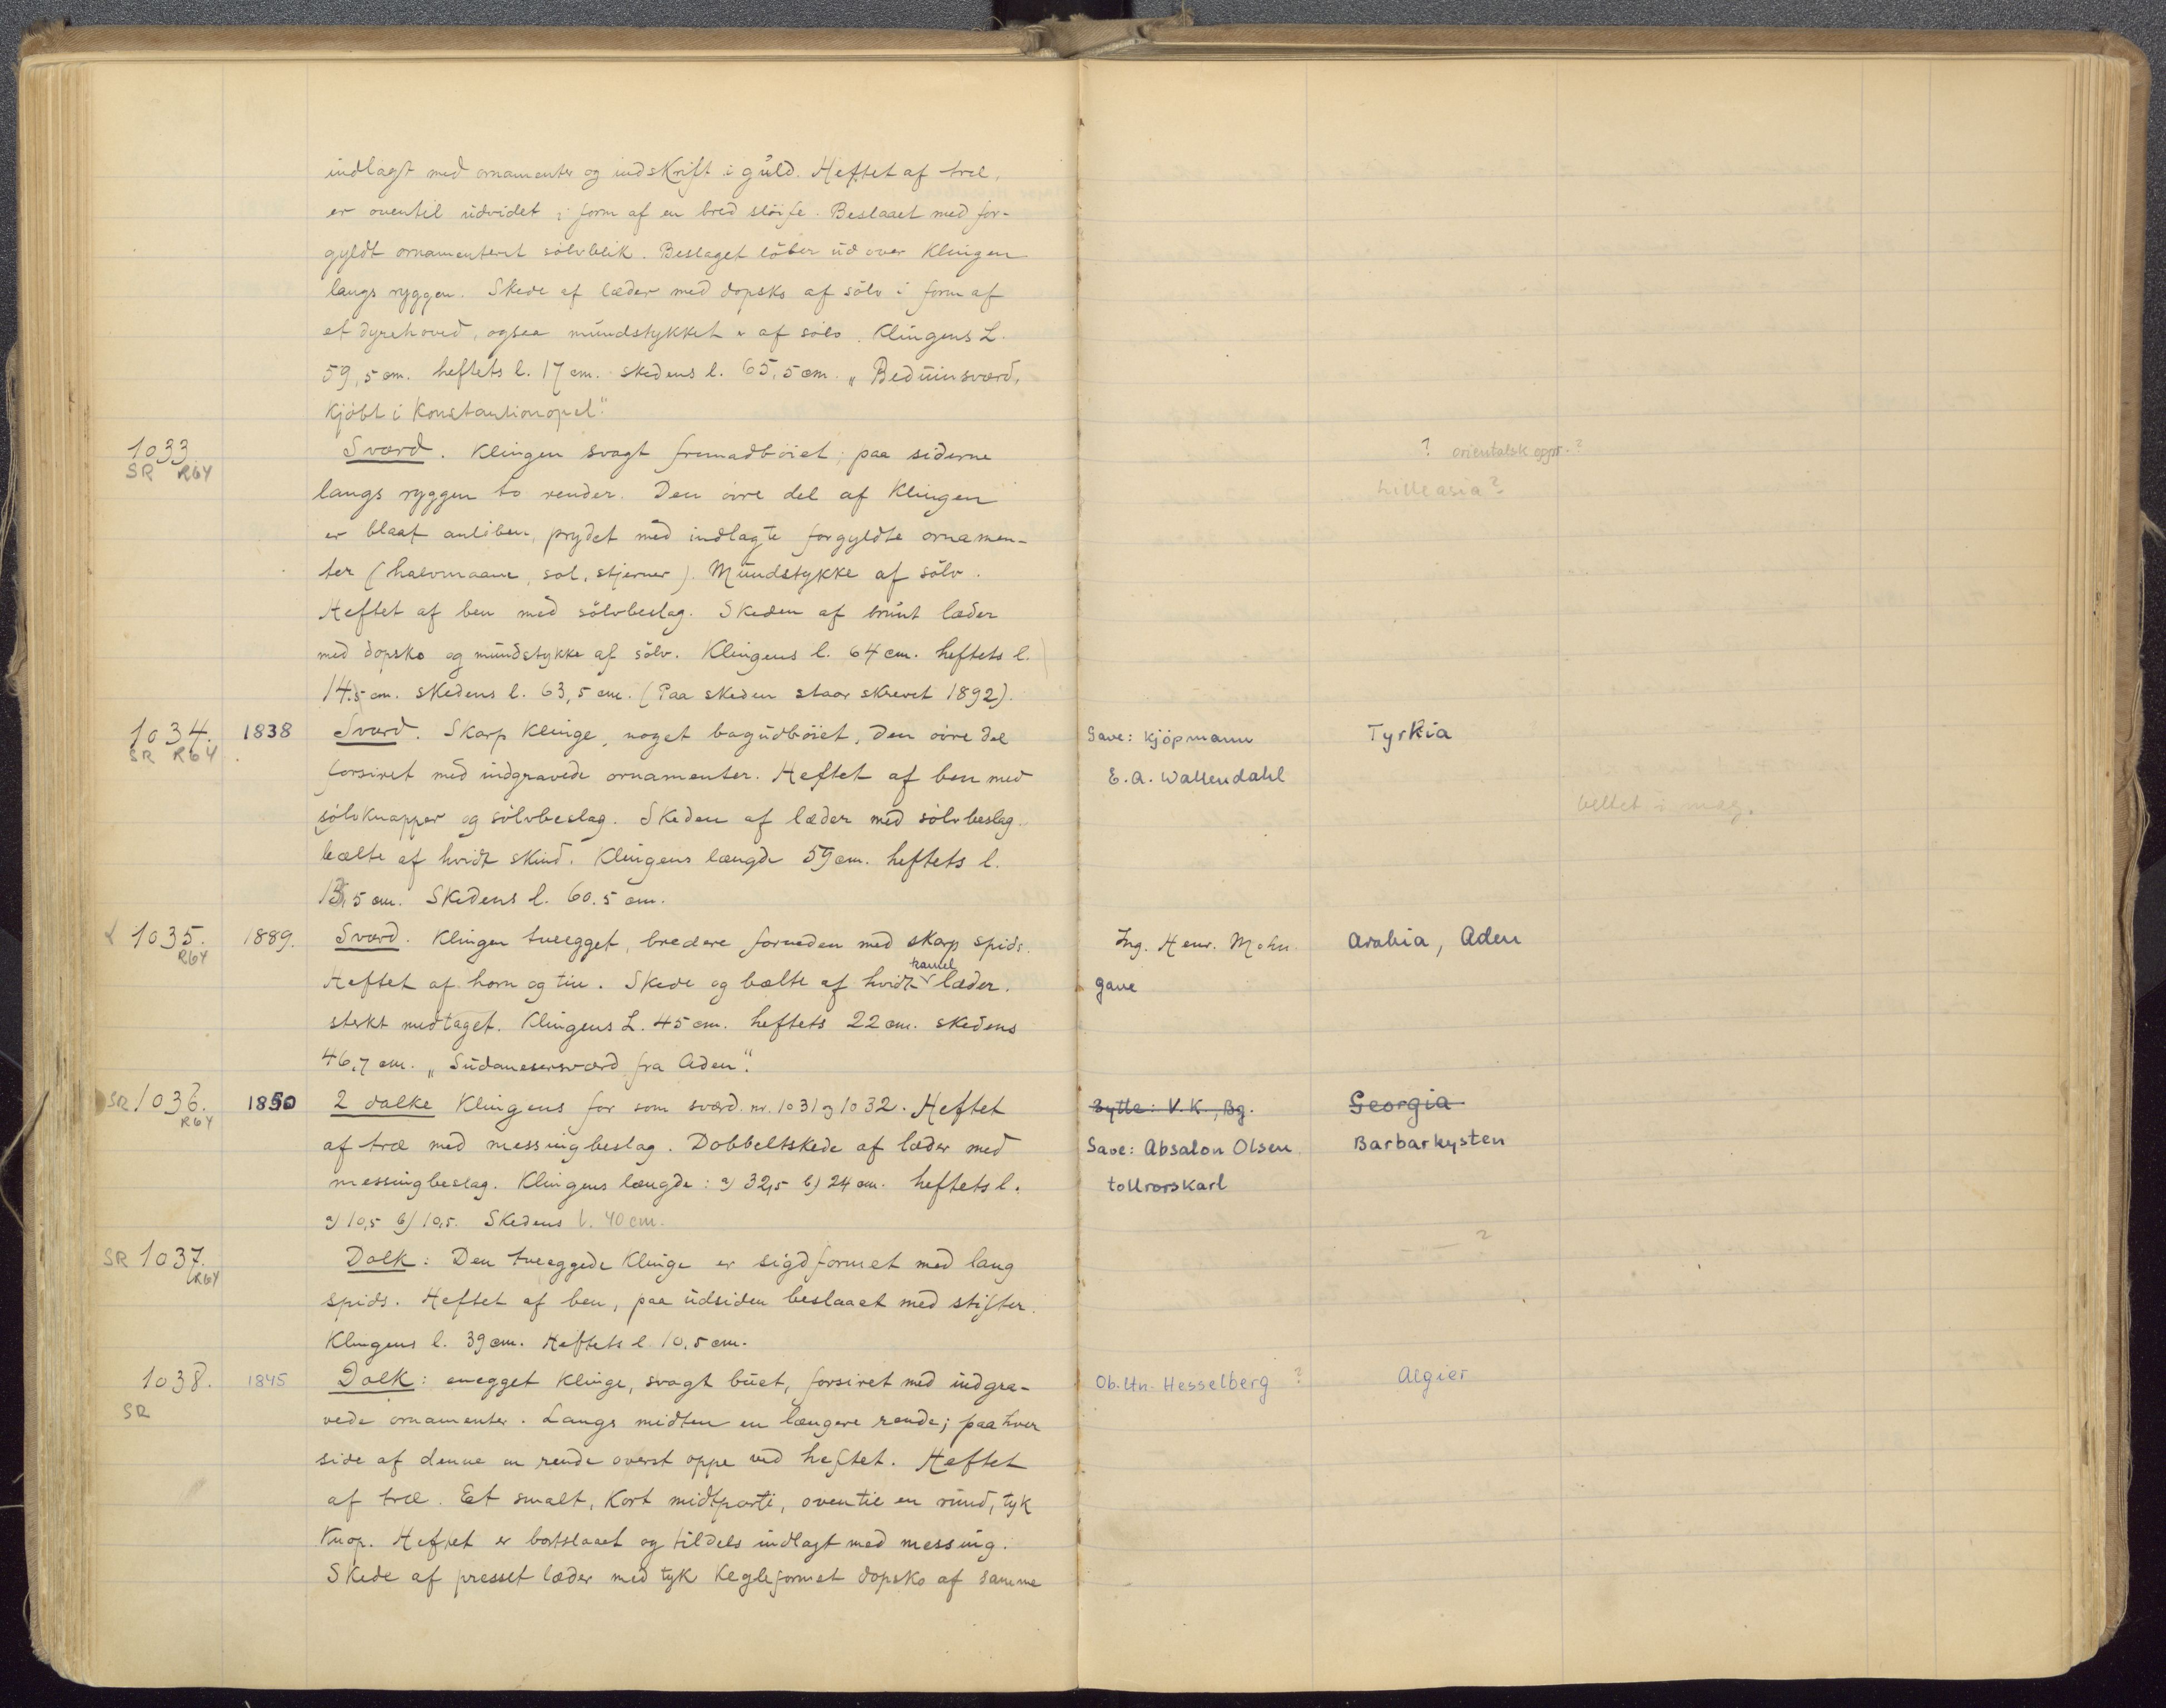 indlagt med ornamenter og indskrift i guld. Heftet af træ,
er oventil udvidet i form af en bred slöife. Beslaaet med for-
gyldt ornamenteret sölvblik. Beslaget löber ud over Klingen
langs ryggen. Skede af læder med dopsko af sölv i form af
et dyrehoved, ogsaa mundstykket er af sölv. Klingens L.
59,5 cm. heftets l. 17 cm. skedens l. 65,5 cm. „Beduinsværd,
Kjöbt i Konstantinopel".
1033 Sværd. Klingen svagt fremadböiet; paa siderne ? orientalsk oppr.?
SR R64 langs ryggen to render. Den övre del af Klingen Lilleasia?
er blaat anlöben, prydet med indlagte forgyldte ornamen-
ter (halvmaane, sol, stjerner). Mundstykke af sölv.
Heftet af ben med sölvbeslag. Skeden af brunt læder
med dopsko og mundstykke af sölv. Klingens l. 64 cm. heftets l.
14,5 cm. skedens l. 63,5 cm. (Paa skeden staar skrevet 1892).
1034. 1838 Sværd. Skarp Klinge, noget bagudböiet, Den övre del Gave: Kjöpmann Tyrkia
SR R64 forsiret med indgravede ornamenter. Heftet af ben med E.A. Wallendahl
sölvknapper og sölvbeslag. Skeden af læder med sölvbeslag. beltet i mag.
bælte af hvidt skind. Klingens længde 59 cm. heftets l.
13,5 cm. Skedens l. 60.5 cm.
1035. 1889. Sværd. Klingen tveegget, bredere forneden med skarp spids. Ing. Henr. Mohn. Arabia, Aden
R64 Heftet af horn og tin. Skede og bælte af hvidt kamel læder. gave
sterkt medtaget. Klingens L. 45 cm. heftets 22 cm. skedens
46,7 cm. „Sudanesersværd fra Aden".
SR 1036. 1850 2 dolke Klingens for som sværd. nr. 1031 og 1032. Heftet Bytte: V.K., Bg. Georgia
R64 af træ med messingbeslag. Dobbeltskede af læder med Gave: Absalon Olsen Barbarkysten
messingbeslag. Klingens længde: a) 32,5 b) 24 cm. heftets l. tollrorskarl
a) 10,5 b) 10,5. Skedens l. 40 cm.
SR 1037. Dolk: Den tveeggede Klinge er sigdformet med lang — ?
R64 spids. Heftet af ben, paa udsiden beslaaet med stifter.
Klingens l. 39 cm. Heftets l 10,5 cm.
1038. 1845 Dolk: enegget Klinge, svagt buet, forsiret med indgra- Ob.ltn. Hesselberg ? Algier
SR vede ornamenter. Langs midten en længere rende; paa hver
side af denne en rende överst oppe ved heftet. Heftet
af træ. Et smalt, Kort midtparti, oventil en rund, tyk
Knop. Heftet er bortslaaet og tildels indlagt med messing.
Skede af presset læder med tyk Kegleformet dopsko af samme